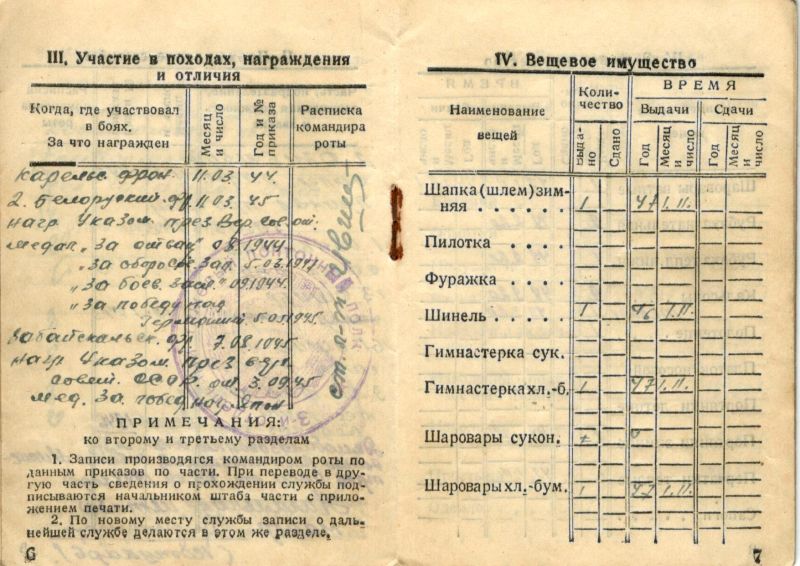 III. Участие в походах, награждения
и отличия
Когда, где участвовал
в боях.
За что награжден
Месяц
и число
Год и №
приказа
Расписка
командира
роты
Карельс фрон. 11.03. 44.
2. Белоруский фр. 11.03. 45.
нагр Указом през Вер сов от.
медал „За отваг" 1944.
„За оборо Зап. 5.03.1941
„За боев засл" 1944.
„За победу над
Германией 1945.
Забайкальск. фр 7.08.1945
нагр Указом през вер.
совет. СССР. от 3.09.45
мед. За побед над Япон
ст. л-т
ПРИМЕЧАНИЯ:
ко второму и третьему разделам
1. Записи производятся командиром роты по
данным приказов по части. При переводе в дру-
гую часть сведения о прохождении службы под-
писываются начальником штаба части с прило-
жением печати.
2. По новому месту службы записи о даль-
нейшей службе делаются в этом же разделе.
6
IV. Вещевое имущество
Наименование
вещей
Коли-
чество
ВРЕМЯ
Выдачи
Сдачи
Выда-
но
Сдано
Год
Месяц
и число
Год
Месяц
и число
Шапка (шлем) зим-
няя . . . . . 1 47 1.11.
Пилотка . . . .
Фуражка . . . .
Шинель . . . . 1 46 1.11.
Гимнастерка сук.
Гимнастерка хл.-б. 1 47 1.11.
Шаровары сукон.
Шаровары хл.-бум. 1 47 1.11.
7